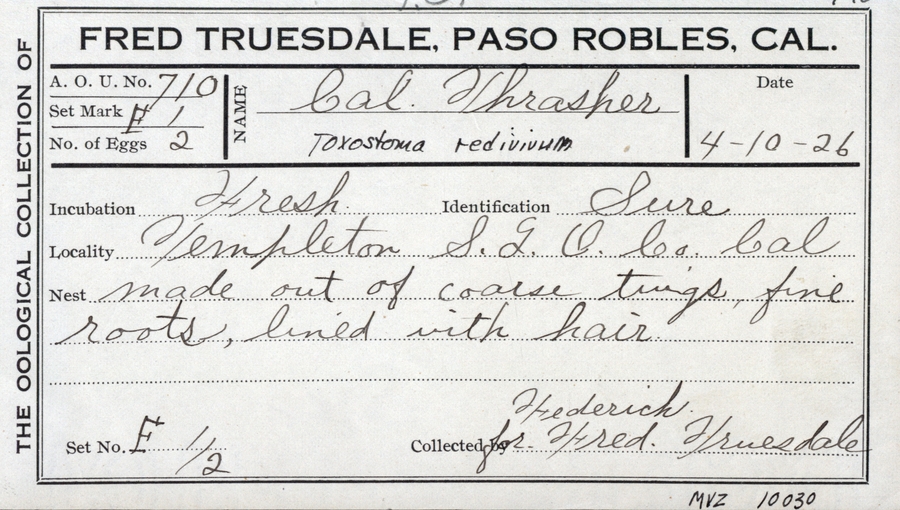 THE OOLOGICAL COLLECTION OF
FRED TRUESDALE, PASO ROBLES, CAL.
A. O. U. No. 710
Set Mark E 1
No. of Eggs 2
NAME
Cal. Thrasher
Toxostoma redivivum
Date
4-10-26
Incubation Fresh. Identification Sure
Locality Templeton S. L. O. Co. Cal
Nest made out of coarse twigs, fine
roots, lined with hair.
Set No. E 1/2
Collected by Federich.
for Fred. Truesdale
MVZ 10030